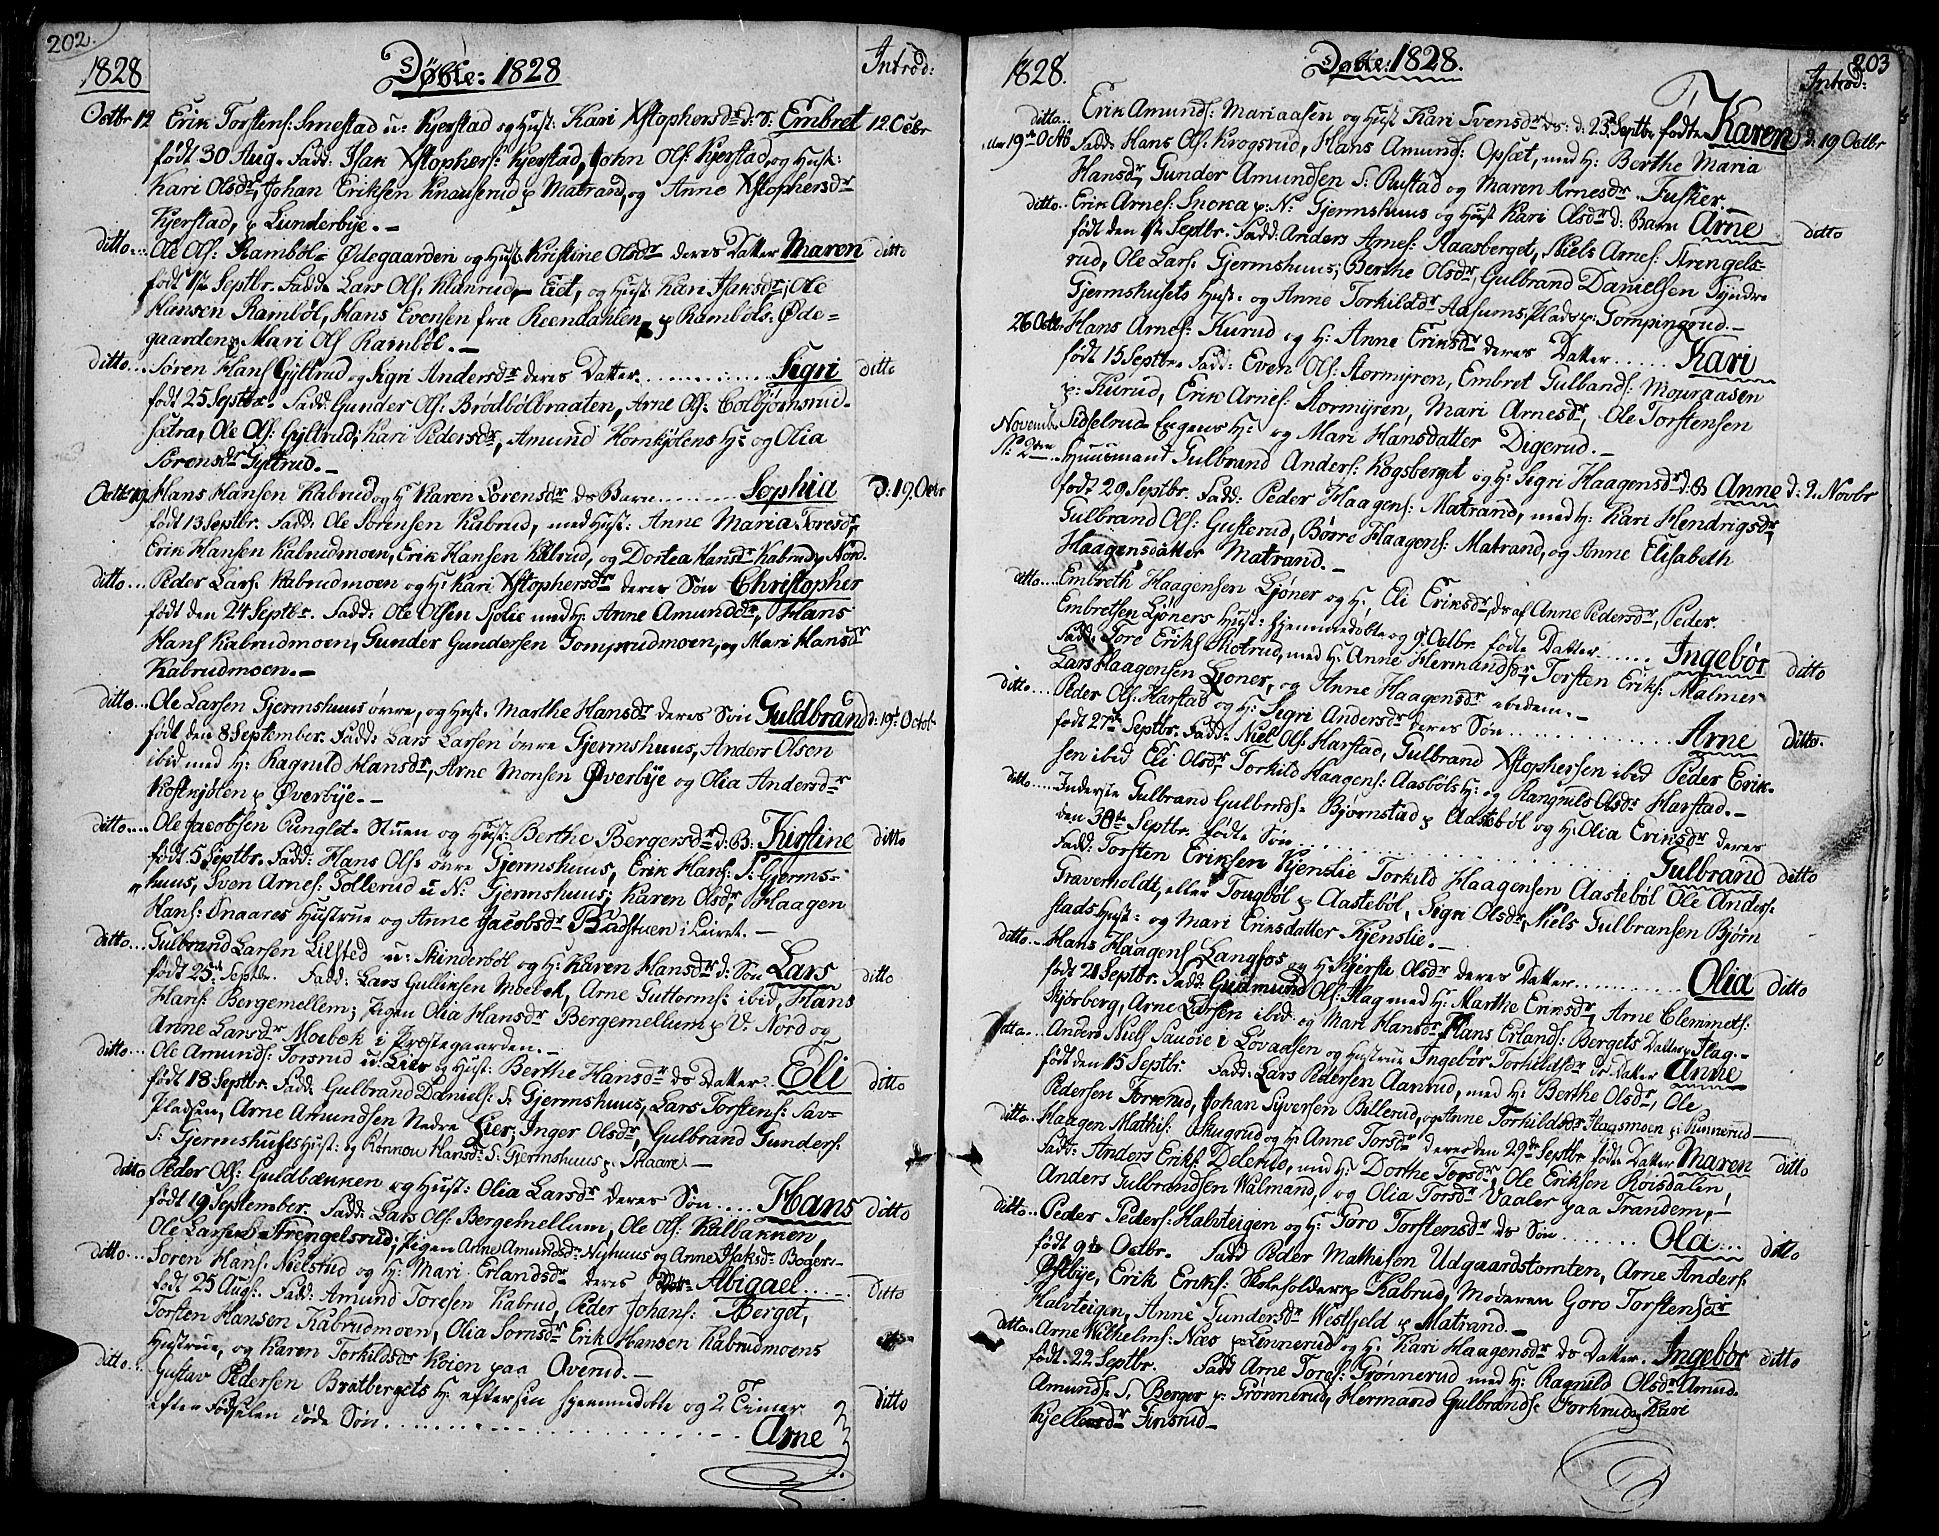 202.
1828 Døbte: 1828 Introd:
Octbr 12 Erik Torstens: Smestad u: Kjerstad og Hust: Kari Xstophersdr d: S: Embret 12 Octbr
født 30 Aug. Fadd: Isak Xstophers: Kjerstad, John Ols: Kjerstad, og Hust:
Kari Olsdr, Johan Eriksen Knauserud p Matrand, og Anne Xstophersdr
Kjerstad, p Lunderbye.-
ditto... Ole Ols: Ramböl- Ødegaarden og Hust. Kristine Olsdr deres Datter Maren ditto
født 1ste Septbr. Fadd. Lars Ols. Klanrud, Eiet, og Hust: Kari Isaksdr; Ole
Hansen Ramböl, Hans Evensen fra Reendahlen p Ramböls Øde=
gaarden, Mari Ols Ramböl.-
ditto... Søren Hans Gyltrud og Sigri Andersdr deres Datter .......... Sigri ditto
født 25 Septbr. Fadd: Gunder Ols: Brødbölbraaten, Arne Ols: Colbjørnsrud-
sætra, Ole Ols: Gyltrud; Kari Pedersdr, Amund Hornkjölens H: og Olia
Sørensdr Gyltrud.-
Octbr 19. Hans Hansen Kabrud og H: Karen Sørensdr ds Barn ........ Sophia d: 19. Octbr
født 13 Septbr. Fadd: Ole Sørensen Kabrud, med Hust: Anne Maria Toresdr,
Erik Hansen Kabrudmoen, Erik Hansen Kabrud, og Dortea Hansdr Kabrud, Nord.
ditto... Peder Lars: Kabrudmoen og H: Kari Xstophersdr deres Søn Christopher
født den 24 Septbr. Fadd: Ole Olsen Sjølie med H: Anne Amundsdr, Hans
Hans Kabrudmoen, Gunder Gundersen Gomperudmoen, og Mari Hansdr
Kabrudmoen.-
ditto... Ole Larsen Gjermshuus øvre, og Hust. Marthe Hansdr deres Søn Guldbrand d: 19 Octob-
født den 8 September. Fadd: Lars Larsen øvre Gjermshuus, Anders Olsen
ibid med H: Ragnild Hansdr, Arne Monsen Øverbye og Olia Andersdr
Kostkjölen p Øverbye.-
ditto.... Ole Jacobsen Punglet- Stuen og Hust: Berthe Bergersdr d: B: Kirstine ditto
født 5 Septbr. Fadd: Hans Ols: øvre Gjermshuus, Erik Hans: S: Gjerms=
huus, Sven Arnes: Tollerud u N: Gjermshuus; Karen Olsdr, Haagen
Hans: Snaares Hustrue og Anne Jacobsdr Badstuen i Leiret.-
ditto... Gulbrand Larsen Lilsted u: Skinderböl og H: Karen Hansdr d: Søn Lars ditto
født 25de Septbr. Fadd: Lars Gullinsen Moebek, Arne Guttorms: ibid, Hans
Hans: Bergemellem; Pigen Olia Hansdr Bergemellum p V: Nord og
Anne Larsdr Moebek i Præstegaarden.-
ditto... Ole Amunds: Torsrud u: Lier og Hust: Berthe Hansdr ds Datter.. Eli ditto
født 18 Septbr. Fadd Gulbrand Daniels: S: Gjermshuus, Lars Torstens: Sav=
Pladsen, Arne Amundsen Nedre Lier; Inger Olsdr, Gulbrand Gunders:
S: Gjermshuses Hust: og Rønnou Hansdr: S: Gjermshuus p: Skaare.-
ditto Peder Ols: Guldbækken og Hust: Olia Larsdr deres Søn .... Hans ditto
født 19 September. Fadd: Lars Ols: Bergemellum, Ole Ols: Kulbakken,
Ole Larsen Strengelsrud; Pigen Anne Amundsdr: Nyhuus og Anne Isaksdr Bogers-
ditto... Søren Hans: Nielsrud og H: Mari Erlandsdr deres Datter Abigael..... ditto
født 25 Aug: Fadd: Amund Toresen Kabrud, Peder Johans: Berget,
Torsten Hansen Kabrudmoen, Olia Sørnsdr Erik Hansen Kabrudmoens
Hustrue, og Karen Torkildsdr Koien paa Overud.-
ditto... Gustav Pedersen Bratbergets H: efter sin hjemmedøbte og 2 Timer
efter Fødselen døde Søn ................ Arne ditto
203
1828. Døbte: 1828. Introd:
ditto... Erik Amunds: Mariaasen og Hust Kari Svensdr ds: d: 25 Septbr fødte Karen d: 19 Octbr
19de Octb Fadd: Hans Ols: Krogsrud, Hans Amunds: Opset, med H: Berthe Maria
Hansdr, Gunder Amundsen S: Rustad og Maren Arnesdr Fusker.
ditto.. Erik Arnes: Snoka p: N: Gjermshuus og Hust Kari Olsdr d: Barn Arne ditto
født den 1ste Septbr. Fadd: Anders Arnes: Raasberget, Niels Arnes: Strengels=
rud, Ole Lars: Gjermshuus; Berthe Olsdr, Gulbrand Danielsen Syndre
Gjermshusets Hust: og Anne Torkildsdr Aasums Plads p: Gompingrud.-
26 Octbr Hans Arnes: Kurud og H: Anne Eriksdr deres Datter .... Kari
født 15 Septbr. Fadd: Even Ols: Stormyren, Embret Gulbands: Mouraasen
p: Kurud, Erik Arnes: Stormyren, Mari Arnesdr, Ole Torstensen
Sidselrud Engens H: og Mari Hansdatter Digerud.-
November
N: 2den.. Huusmand Gulbrand Anders: Kogsberget og H: Sigri Haagensdr d: B Anne d: 2. Novbr
født 20 Septbr. Fadd: Peder Haagens: Matrand, med H: Kari Hendrigsdr,
Gulbrand Ols: Gusterud, Børre Haagens: Matrand, og Anne Elisabeth
Haagensdatter Matrand.-
ditto.... Embreth Haagensen Ljøner og H. Eli Eriksdr, ds af Anne Pedersdr, Peder
Embretsen Ljøners Hust: hjemmedøbte og 9 Octbr fødte Datter ..... Ingebør ditto
Fadd: Tore Eriks Skotrud, med H: Anne Hermandsdr, Torsten Eriks: Malmer
Lars Haagensen Ljoner, og Anne Haagensdr ibidem.-
ditto.... Peder Ols: Harstad og H: Sigri Andersdr deres Søn .............. Arne ditto.
født 27de Septbr. Fadd: Niels Ols Harstad, Gulbrand Xstophersen ibid Peder Erik-
sen ibid Eli Olsdr Torkild Haagens: Aasböls H: og Rangnils Olsdr Harstad.-
ditto.... Inderste Gulbrand Gulbrnds: Bjørnstad p Aastebøl og H: Olia Eriksdr deres
den 30te Septbr. fødte Søn .................... Gulbrand ditto
Fadd: Torsten Eriksen Kjenslie Torkild Haagensen Aastebøl Ole Anders:
Graverholdt, eller Tougböl p Aastebøl, Sigri Olsdr, Niels Gulbransen Bjørn
stads Hust: og Mari Eriksdatter Kjenslie.-
ditto... Hans Haagens Langfos og H: Kjersti Olsdr deres Datter ......... Olia ditto
født 21 Septbr. Fadd: Gudmund Ols: Flag med H: Marthe Eriksdr, Arne Clemmets:
Skjørberg, Arne Larsen ibid: og Mari Hansdr Hans Erlands: Bergets Datter, Flag.-
ditto... Anders Niels Sauoie i Lovaasen og Hustrue Ingebør Torkildsdr ds Datter Anne
født den 15 Septbr. Fadd: Lars Pedersen Aanrud, med H: Berthe Olsdr, Ole
Pedersen Furrerud, Johan Syversen Billerud, og Anne Torkildsdr Flagsmoen p: Runnerud-
ditto... Haagen Mathis: Skugrud og H: Anne Torsdr deres den 29de Septbr fødte Datter Maren ditto
Fadd: Anders Eriks: Delerud, med H: Dorthe Torsdr, Ole Eriksen Roisdalen,
Anders Gulbrandsen Walmand, og Olia Torsdr Vaaler paa Trandem.-
ditto... Peder Peders: Halvteigen og H: Goro Torstensdr ds Søn ........ Ola... ditto
født 9de Octbr. Fadd Peder Mathisen Udgaardstomten, Arne Anders:
Østbye, Erik Eriks: Skoleholder p Kabrud, Moderen Goro Torstensdr
Halvteigen, Anne Gundersdr Westfjeld p Matrand.-
ditto.. Arne Wilhelms: Næs p Linnerud og H: Kari Haagensdr ds Datter. Ingebør ditto
født 22 Septbr. Fadd Arne Tores: Grønnerud med H: Ragnild Olsdr Amud-
Amunds: S. Berger p: Grønnerud, Hermand Gulbrands: Torkrud, Kari
Kjellsdr Finsrud-